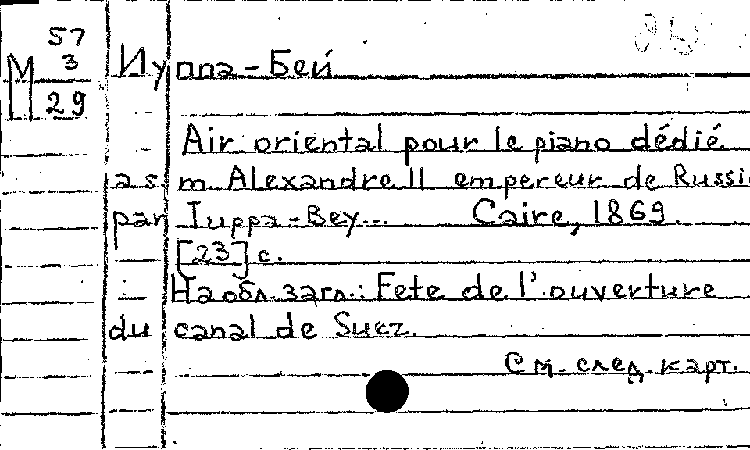 М 57
3
29
Иуппа-Бей
Air oriental pour le piano dédié
a s. m. Alexandre II empereur de Russi
par Iuppa-Bey... Caire, 1869.
[23] с.
На обл. загл.: Fete de l'ouverture
du canal de Suez.
См. след. карт.